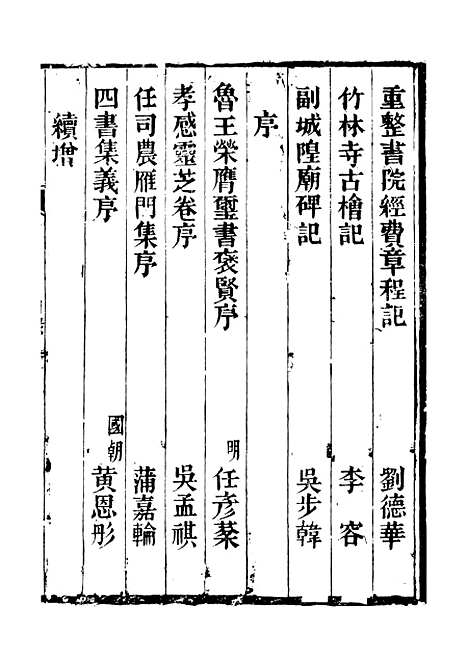 重整書院經費章程記 劉德華
竹林寺古檜記 李容
副城隍廟碑記 吳步韓
序
魯王榮膺璽書褒賢序 明 任彥棻
孝感靈芝卷序 吳孟祺
任司農雁門集序 蒲嘉輪
四書集義序 國朝 黃恩彤
續增